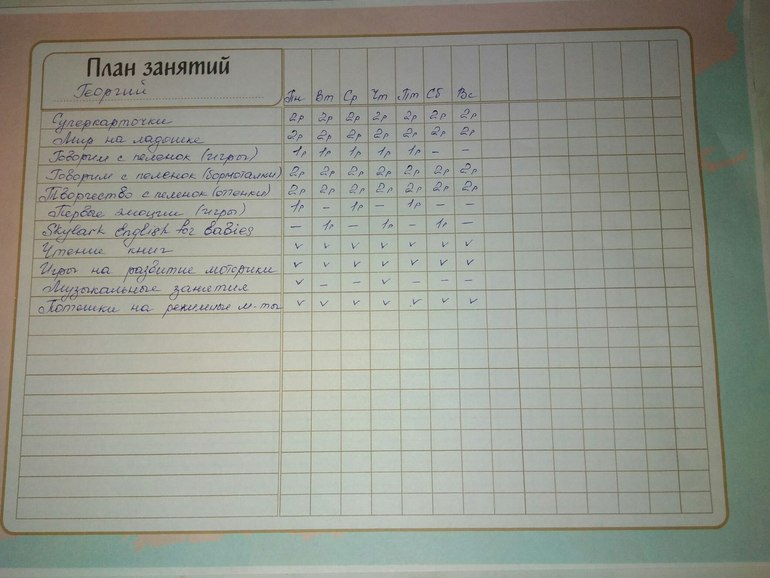 План занятий
Георгий
Пн Вт Ср Чт Пт Сб Вс
Суперкарточки 2р 2р 2р 2р 2р 2р 2р
Мир на ладошке 2р 2р 2р 2р 2р 2р 2р
Говорим с пеленок (игры) 1р 1р 1р 1р 1р – –
Говорим с пеленок (бормоталки) 2р 2р 2р 2р 2р 2р 2р
Творчество с пеленок (оттенки) 2р 2р 2р 2р 2р 2р 2р
Первые эмоции (игры) 1р – 1р – 1р – –
Skylark English for babies – 1р – 1р – 1р –
Чтение книг v v v v v v v
Игры на развитие моторики v v v v v v v
Музыкальные занятия v – – v – – –
Потешки на режимные м-ты v v v v v v v